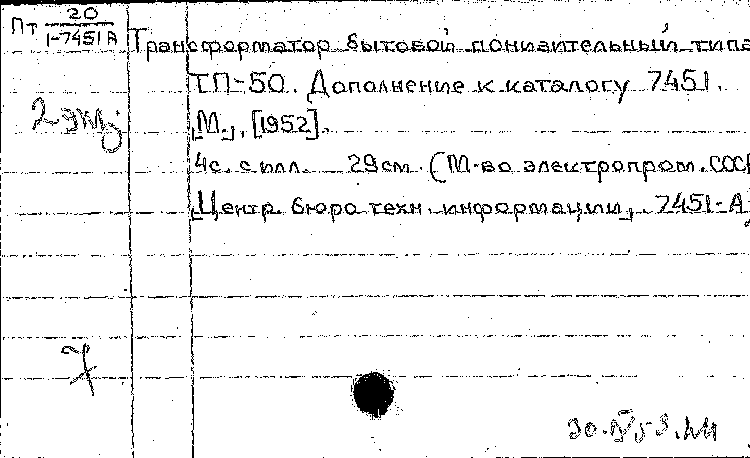 Пт 20
1-7451 А
Трансформатор бытовой понизительный типа
ТП-50. Дополнение к каталогу 7451.
2 экз.
[М.], [1952].
4с. с илл. 29см. (М-во электропром. СССР
[Центр. бюро техн. информации], 7451-А)
7
30.IV